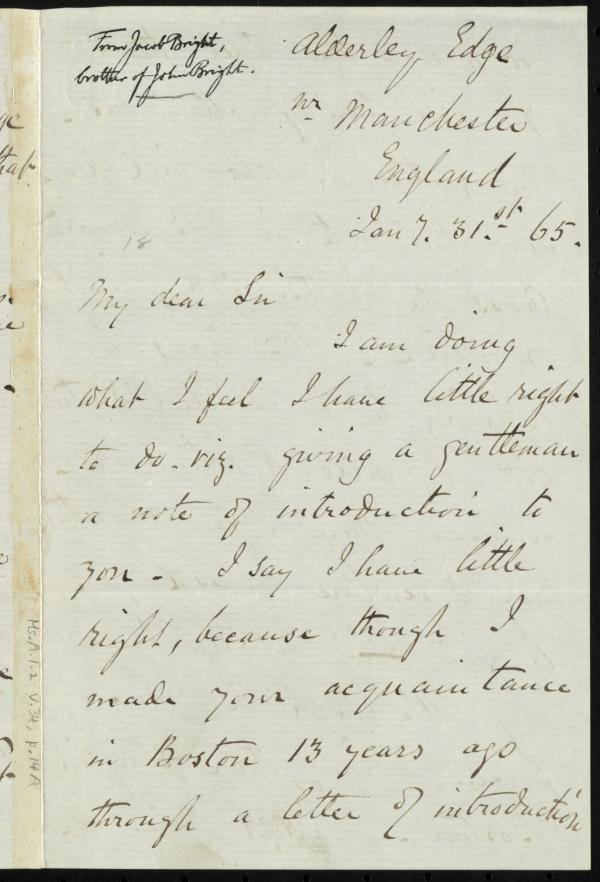 From Jacob Bright,
brother of John Bright.
Alderley Edge
nr Manchester
England
Jany. 31.st 65.
18
My dear Sir
I am doing
what I feel I have little right
to do. viz. giving a gentleman
a note of introduction to
you - I say I have little
right, because though I
made your acquaintance
in Boston 13 years ago
through a letter of introduction
Ms.A.1.2 v.34, p.14A